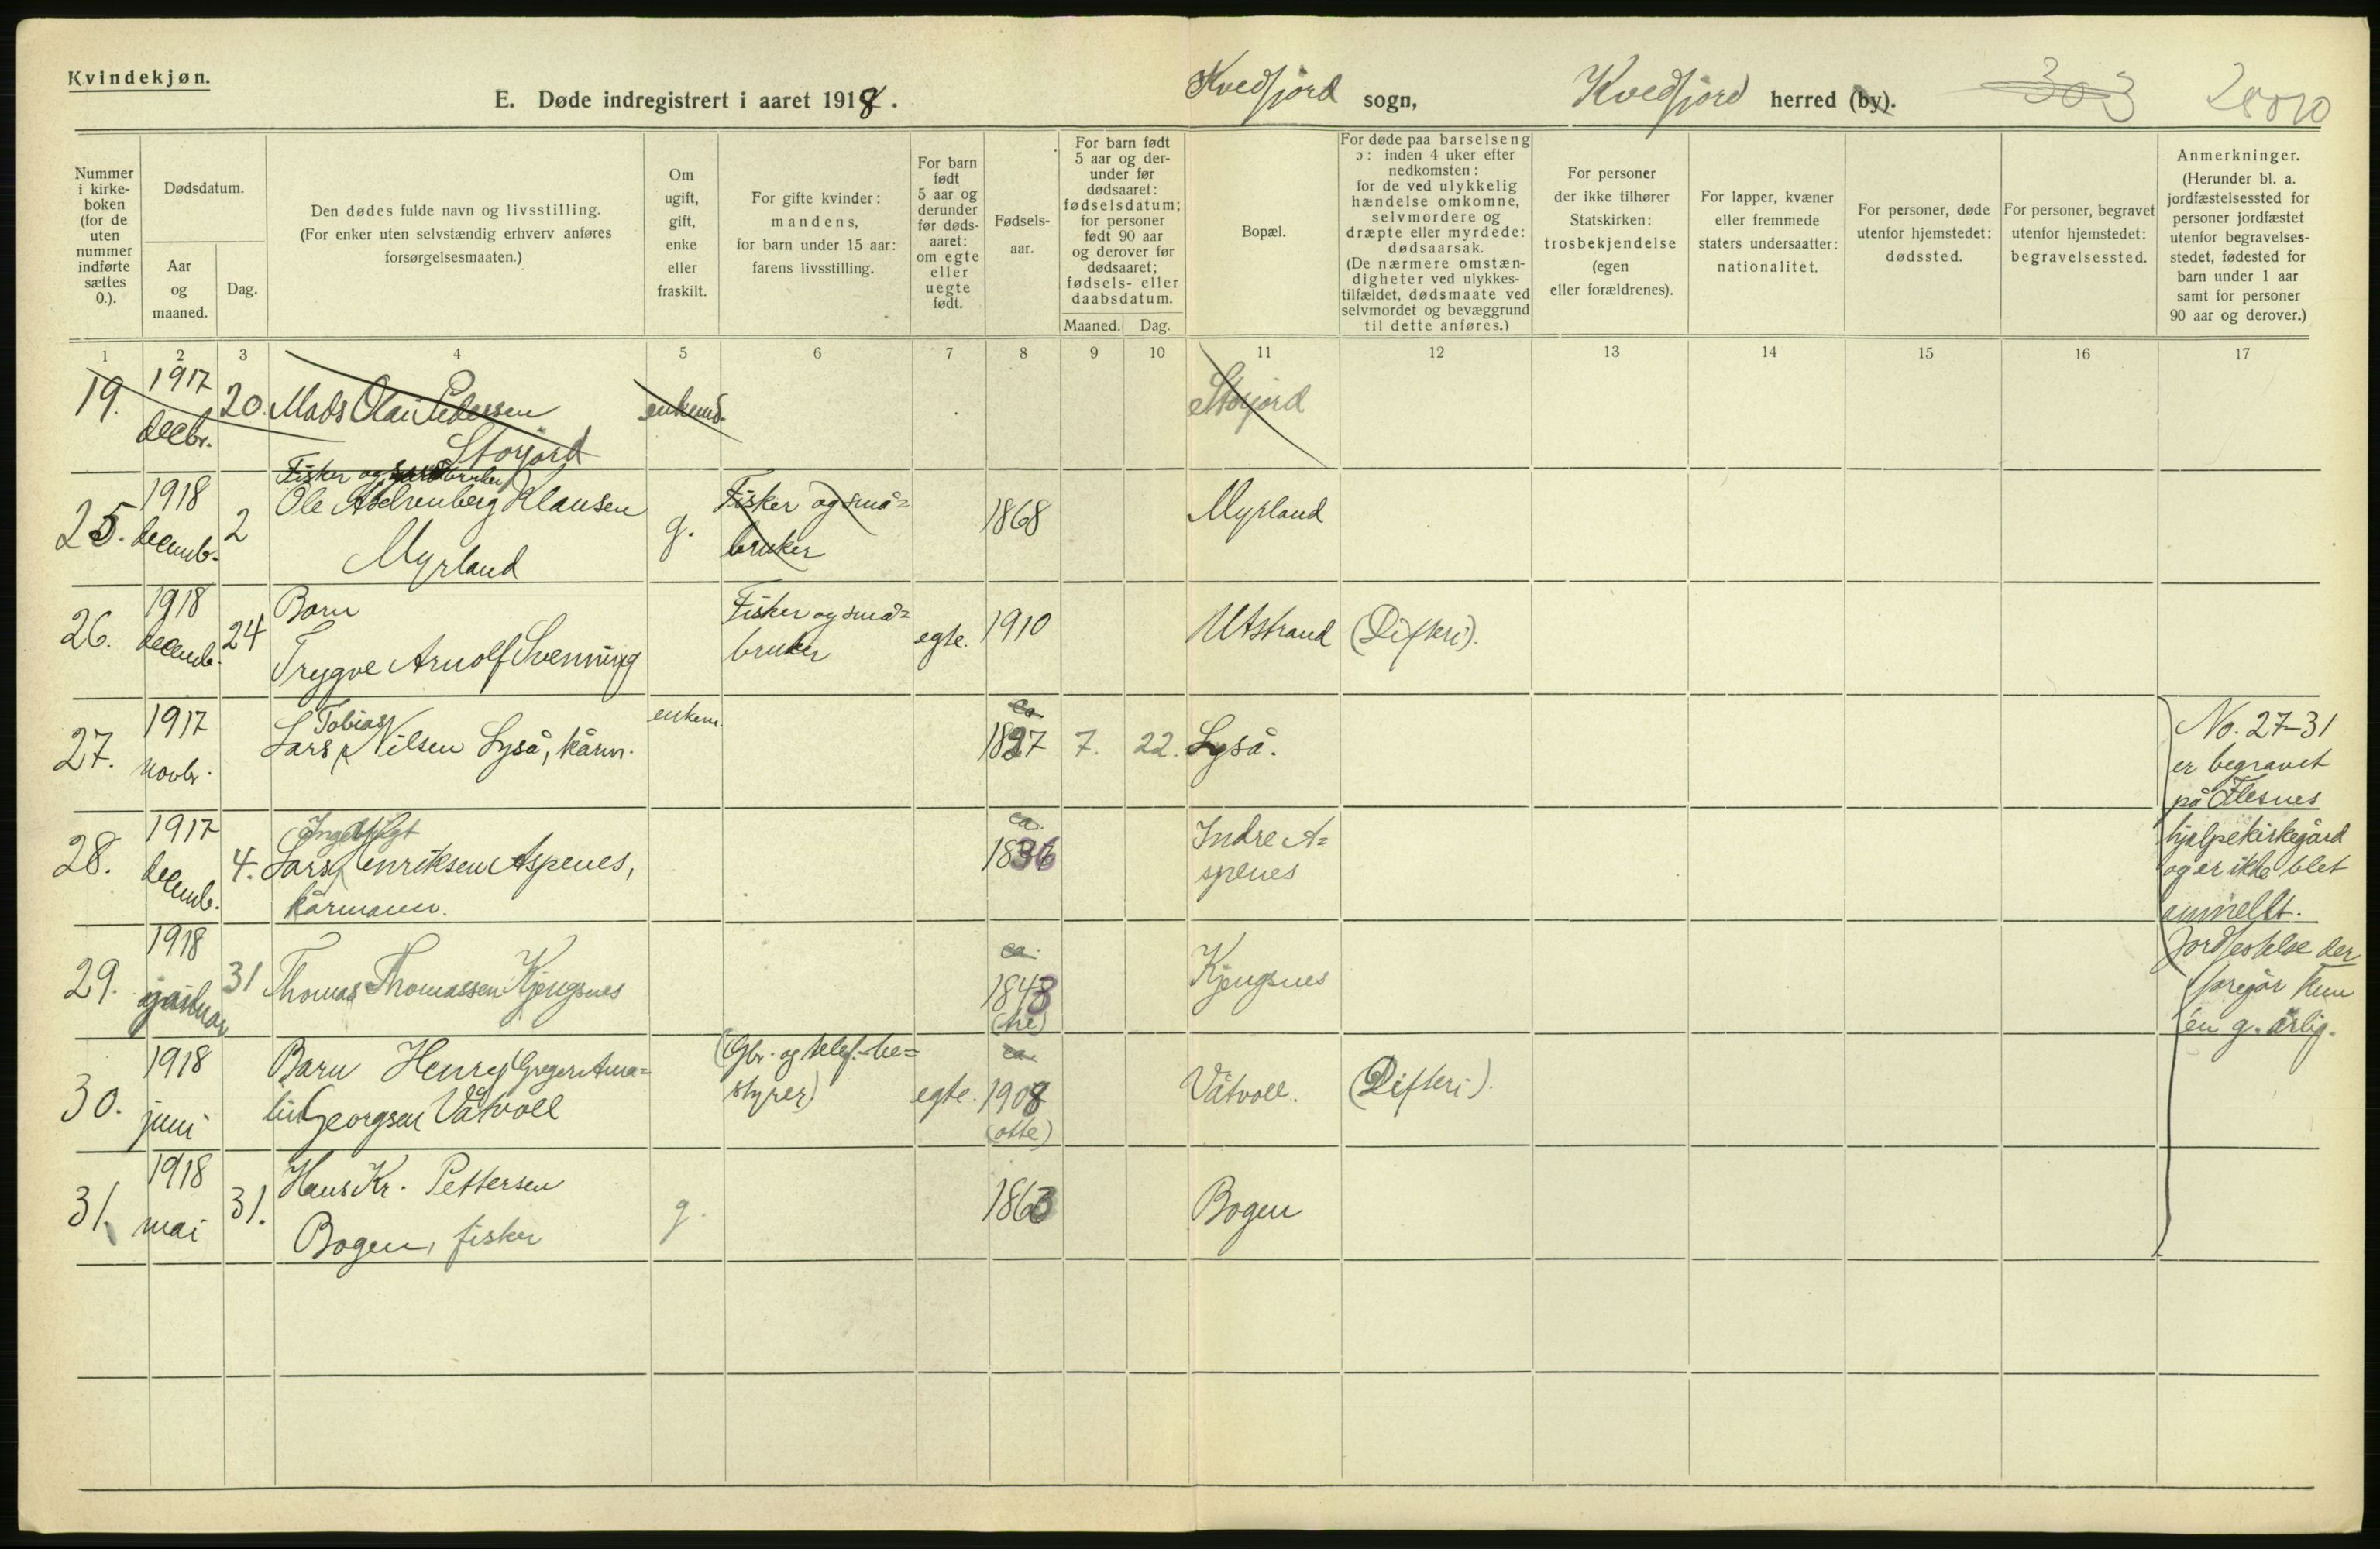 Kvindekjøn.
E. Døde indregistrert i aaret 1918.
Kvedfjord sogn,
Kvedfjord herred (by).
303
Nummer i kirke-boken (for de uten nummer indførte sættes 0.).
Dødsdatum.
Aar og maaned.
Dag.
Den dødes fulde navn og livsstilling.
(For enker uten selvstændig erhverv anføres forsørgelsesmaaten.)
Om ugift, gift, enke eller fraskilt.
For gifte kvinder: mandens, for barn under 15 aar: farens livsstilling.
For barn født 5 aar og derunder før døds-aaret: om egte eller uegte født.
Fødsels-aar.
For barn født 5 aar og der-under før dødsaaret: fødselsdatum; for personer født 90 aar og derover før dødsaaret; fødsels- eller daabsdatum.
Maaned.
Dag.
Bopæl.
For døde paa barselseng ɔ: inden 4 uker efter nedkomsten: for de ved ulykkelig hændelse omkomne, selvmordere og dræpte eller myrdede: dødsaarsak.
(De nærmere omstæn-digheter ved ulykkes-tilfældet, dødsmaate ved selvmordet og bevæggrund til dette anføres.)
For personer der ikke tilhører Statskirken: trosbekjendelse (egen eller forældrenes).
For lapper, kvæner eller fremmede staters undersaatter: nationalitet.
For personer, døde utenfor hjemstedet: dødssted.
For personer, begravet utenfor hjemstedet: begravelsessted.
Anmerkninger.
(Herunder bl. a. jordfæstelsessted for personer jordfæstet utenfor begravelses-stedet, fødested for barn under 1 aar samt for personer 90 aar og derover.)
1 2 3 4 5 6 7 8 9 10 11 12 13 14 15 16 17
19. 1917 decbr. 20. Mads Olai Pedersen Storjord enkem. Storjord
25. 1918 decemb. 2 Fisker og småbruker
Ole Klausen
Myrland g. Fisker og små=
bruker 1868 Myrland
26. 1918 decemb. 24 Barn
Trygve Arnolf Svenning Fisker og små=
bruker egte. 1910 Utstrand (Difteri).
27. 1917 novbr. Tobias
Lars Nilsen Lyså, kårm. enkem. ca. 1827 7. 22. Lyså.
No. 27-31
er begravet
på Flesnes
hjelpekirkegård
og er ikke blet
anmeldt.
Jordfestelse der
foregår kun
én g. årlig.
28. 1917 decemb. 4. Ingebrigt
Lars Henriksen Aspenes,
kårmann. ca. 1836 Indre A=
spenes
29. 1918 januar 31 Thomas Thomassen Kjengsnes ca. 1843
(tre) Kjengsnes
30. 1918 juni Barn Henry Greger Ama=
Georgsen Våtvoll (Gbr. og telef.-be=
styrer) egte. ca. 1908
(otte) Våtvoll. (Difteri).
31. 1918 mai 31. Hans Kr. Pettersen
Bogen, fisker g. 1863 Bogen